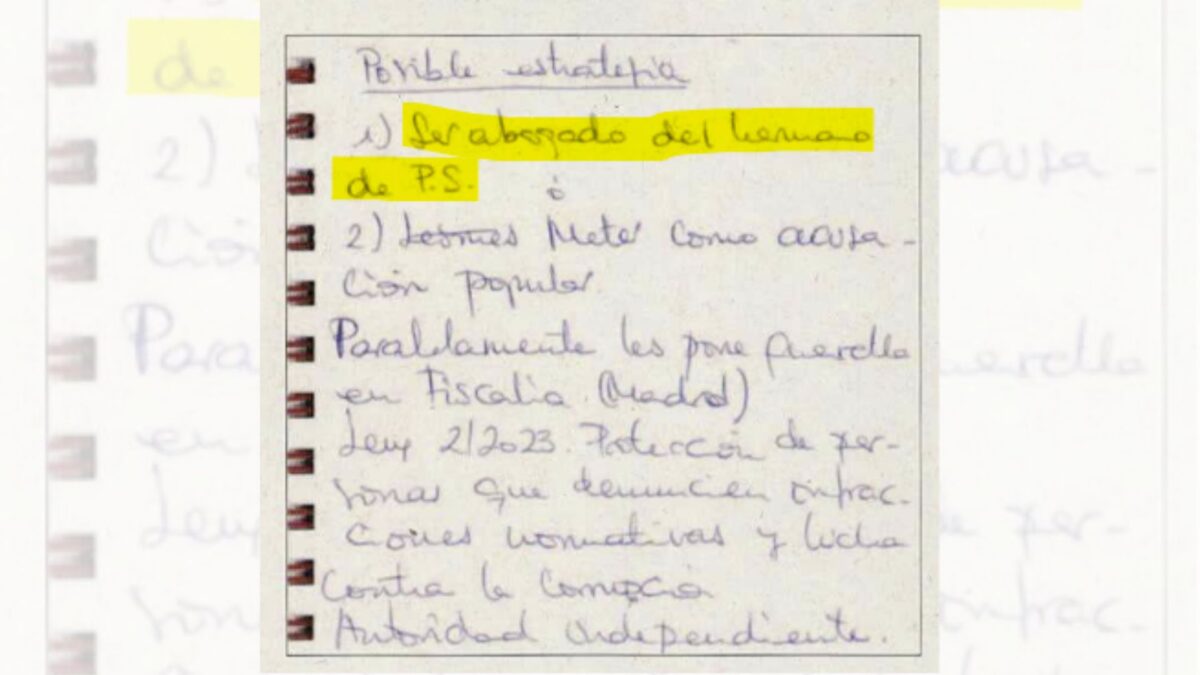 Posible estrategia
1) Ser abogado del hermano
de P.S. ó
2) Meter como acusa-
ción popular.
Paralelamente les pone querella
en Fiscalía (Madrid)
Ley 2/2023. Protección de per-
sonas que denuncien infrac-
ciones normativas y lucha
contra la corrupción
Autoridad independiente.